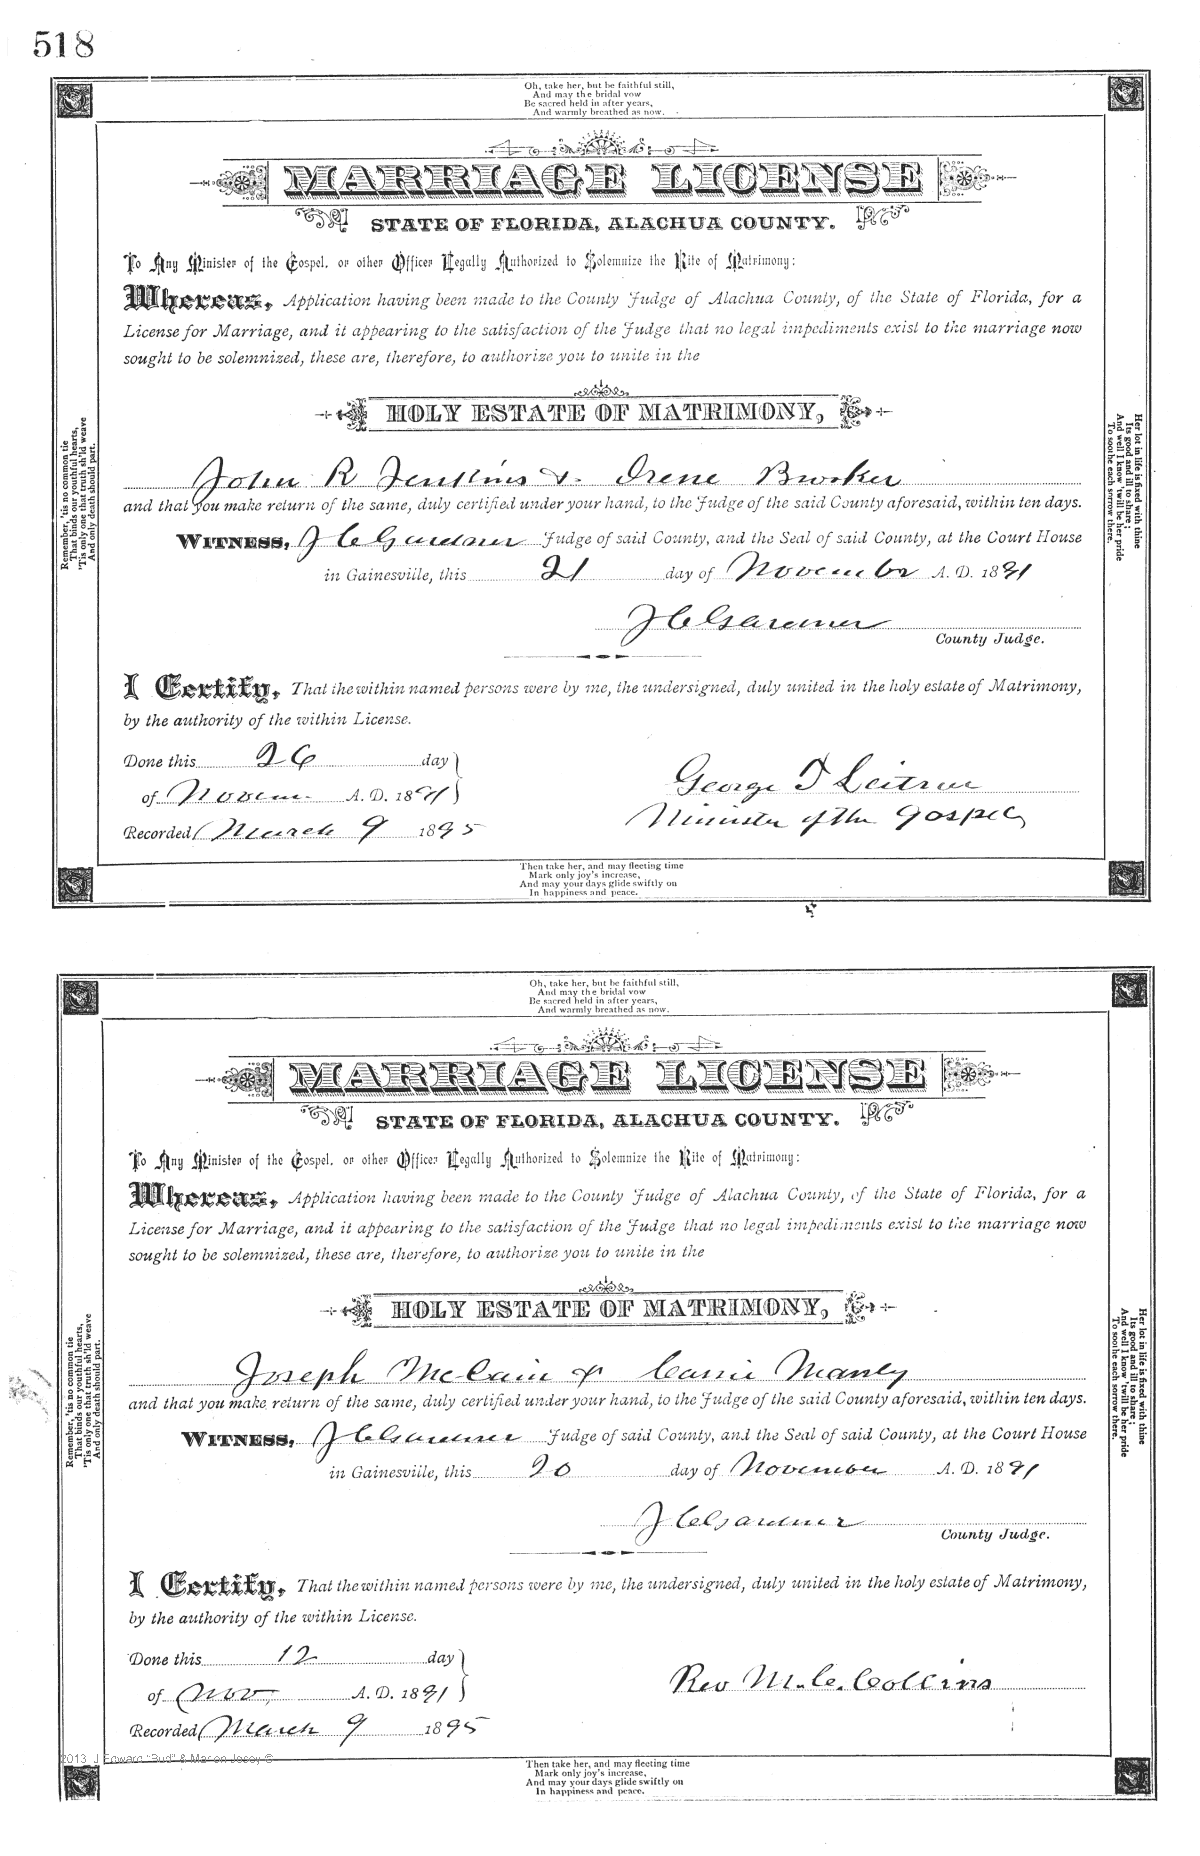 518
Oh, take her, but be faithful still,
And may the bridal vow
Be sacred held in after years,
And warmly breathed as now.
MARRIAGE LICENSE
STATE OF FLORIDA, ALACHUA COUNTY.
To Any Minister of the Gospel, or other Officer Legally Authorized to Solemnize the Rite of Matrimony:
Whereas, Application having been made to the County Judge of Alachua County, of the State of Florida, for a
License for Marriage, and it appearing to the satisfaction of the Judge that no legal impediments exist to the marriage now
sought to be solemnized, these are, therefore, to authorize you to unite in the
HOLY ESTATE OF MATRIMONY,
John R Jenkins & Irene Booker
and that you make return of the same, duly certified under your hand, to the Judge of the said County aforesaid, within ten days.
WITNESS, J C Gardner Judge of said County, and the Seal of said County, at the Court House
in Gainesville, this 21 day of November A. D. 1891
J C Gardner
County Judge.
I Certify, That the within named persons were by me, the undersigned, duly united in the holy estate of Matrimony,
by the authority of the within License.
Done this 26 day
of Novem A. D. 1891
George T
Minister of the Gospel
Recorded March 9 1895
Remember, 'tis no common tie
That binds our youthful hearts,
'Tis only one that truth sh'ld weave
And only death should part.
Her lot in life is fixed with thine
Its good and ill to share;
And well I know 'twill be her pride
To soothe each sorrow there.
Then take her, and may fleeting time
Mark only joy's increase,
And may your days glide swiftly on
In happiness and peace.
Oh, take her, but be faithful still,
And may the bridal vow
Be sacred held in after years,
And warmly breathed as now.
MARRIAGE LICENSE
STATE OF FLORIDA, ALACHUA COUNTY.
To Any Minister of the Gospel, or other Officer Legally Authorized to Solemnize the Rite of Matrimony:
Whereas, Application having been made to the County Judge of Alachua County, of the State of Florida, for a
License for Marriage, and it appearing to the satisfaction of the Judge that no legal impediments exist to the marriage now
sought to be solemnized, these are, therefore, to authorize you to unite in the
HOLY ESTATE OF MATRIMONY,
Joseph McCain & Carrie Manly
and that you make return of the same, duly certified under your hand, to the Judge of the said County aforesaid, within ten days.
WITNESS, J C Gardner Judge of said County, and the Seal of said County, at the Court House
in Gainesville, this 20 day of November A. D. 1891
J C Gardner
County Judge.
I Certify, That the within named persons were by me, the undersigned, duly united in the holy estate of Matrimony,
by the authority of the within License.
Done this 12 day
of Nov A. D. 1891
Rev M. C. Collins
Recorded March 9 1895
Remember, 'tis no common tie
That binds our youthful hearts,
'Tis only one that truth sh'ld weave
And only death should part.
Her lot in life is fixed with thine
Its good and ill to share;
And well I know 'twill be her pride
To soothe each sorrow there.
2013 J Edward "Bud" & Marion Josey ©
Then take her, and may fleeting time
Mark only joy's increase,
And may your days glide swiftly on
In happiness and peace.